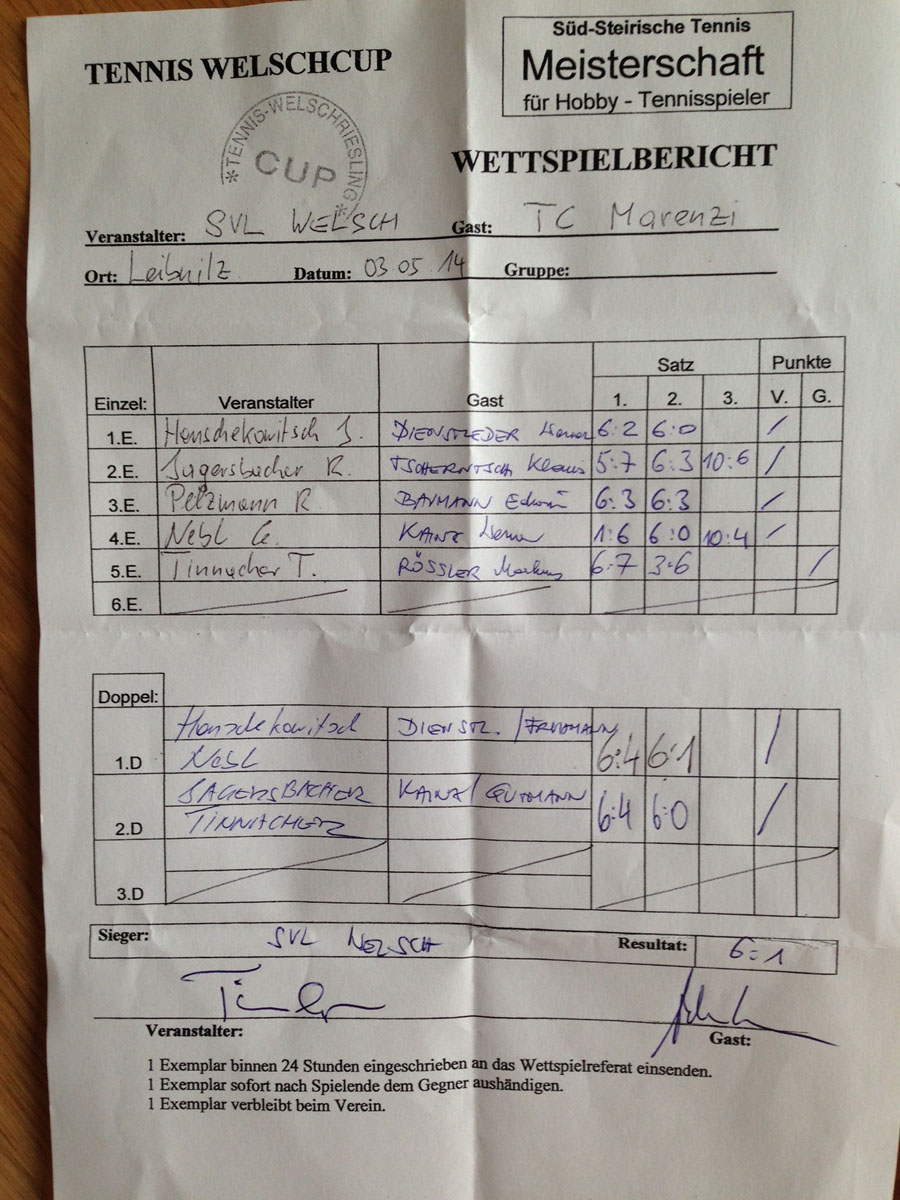 TENNIS WELSCHCUP
Süd-Steirische Tennis
Meisterschaft
für Hobby - Tennisspieler
*TENNIS-WELSCHRIESLING*
CUP
WETTSPIELBERICHT
Veranstalter: SVL WELSCH Gast: TC Marenzi
Ort: Leibnitz Datum: 03.05 14 Gruppe:
Satz Punkte
Einzel: Veranstalter Gast 1. 2. 3. V. G.
1.E. Honschekowitsch J. DIENSTLEDER 6:2 6:0 /
2.E. Jagersbacher R. Klaus 5:7 6:3 10:6 /
3.E. Pelzmann R. BAUMANN Edwin 6:3 6:3 /
4.E. Nebl G. KAINZ 1:6 6:0 10:4 /
5.E. Tinnacher T. RÖSSLER Markus 6:7 3:6 /
6.E.
Doppel:
Honschekowitsch DIENSTL. /
1.D Nebl 6:4 6:1 /
JAGERSBACHER KAINZ / GUTMANN
2.D TINNACHER 6:4 6:0 /
3.D
Sieger: SVL WELSCH Resultat: 6:1
Veranstalter: Gast:
1 Exemplar binnen 24 Stunden eingeschrieben an das Wettspielreferat einsenden.
1 Exemplar sofort nach Spielende dem Gegner aushändigen.
1 Exemplar verbleibt beim Verein.